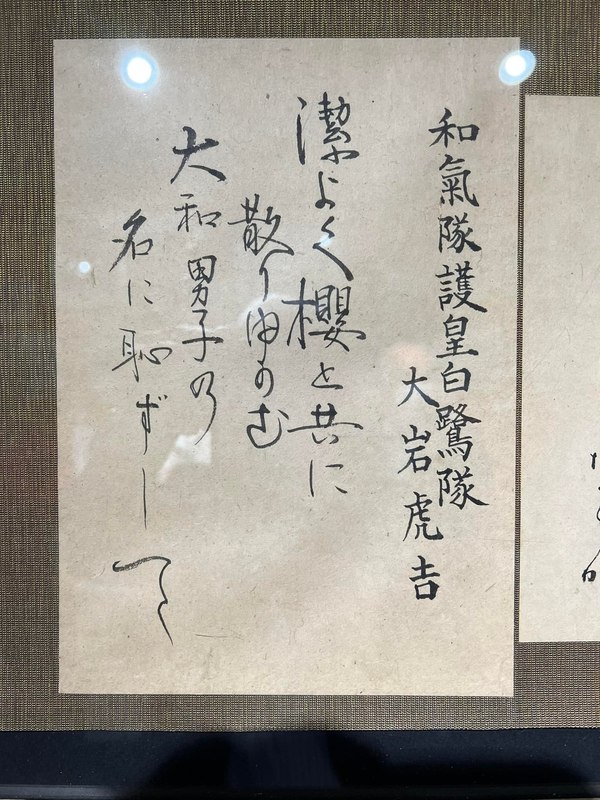 和氣隊護皇白鷺隊
大岩虎吉
潔よく櫻と共に
散りゆかむ
大和男子の
名に恥ずして